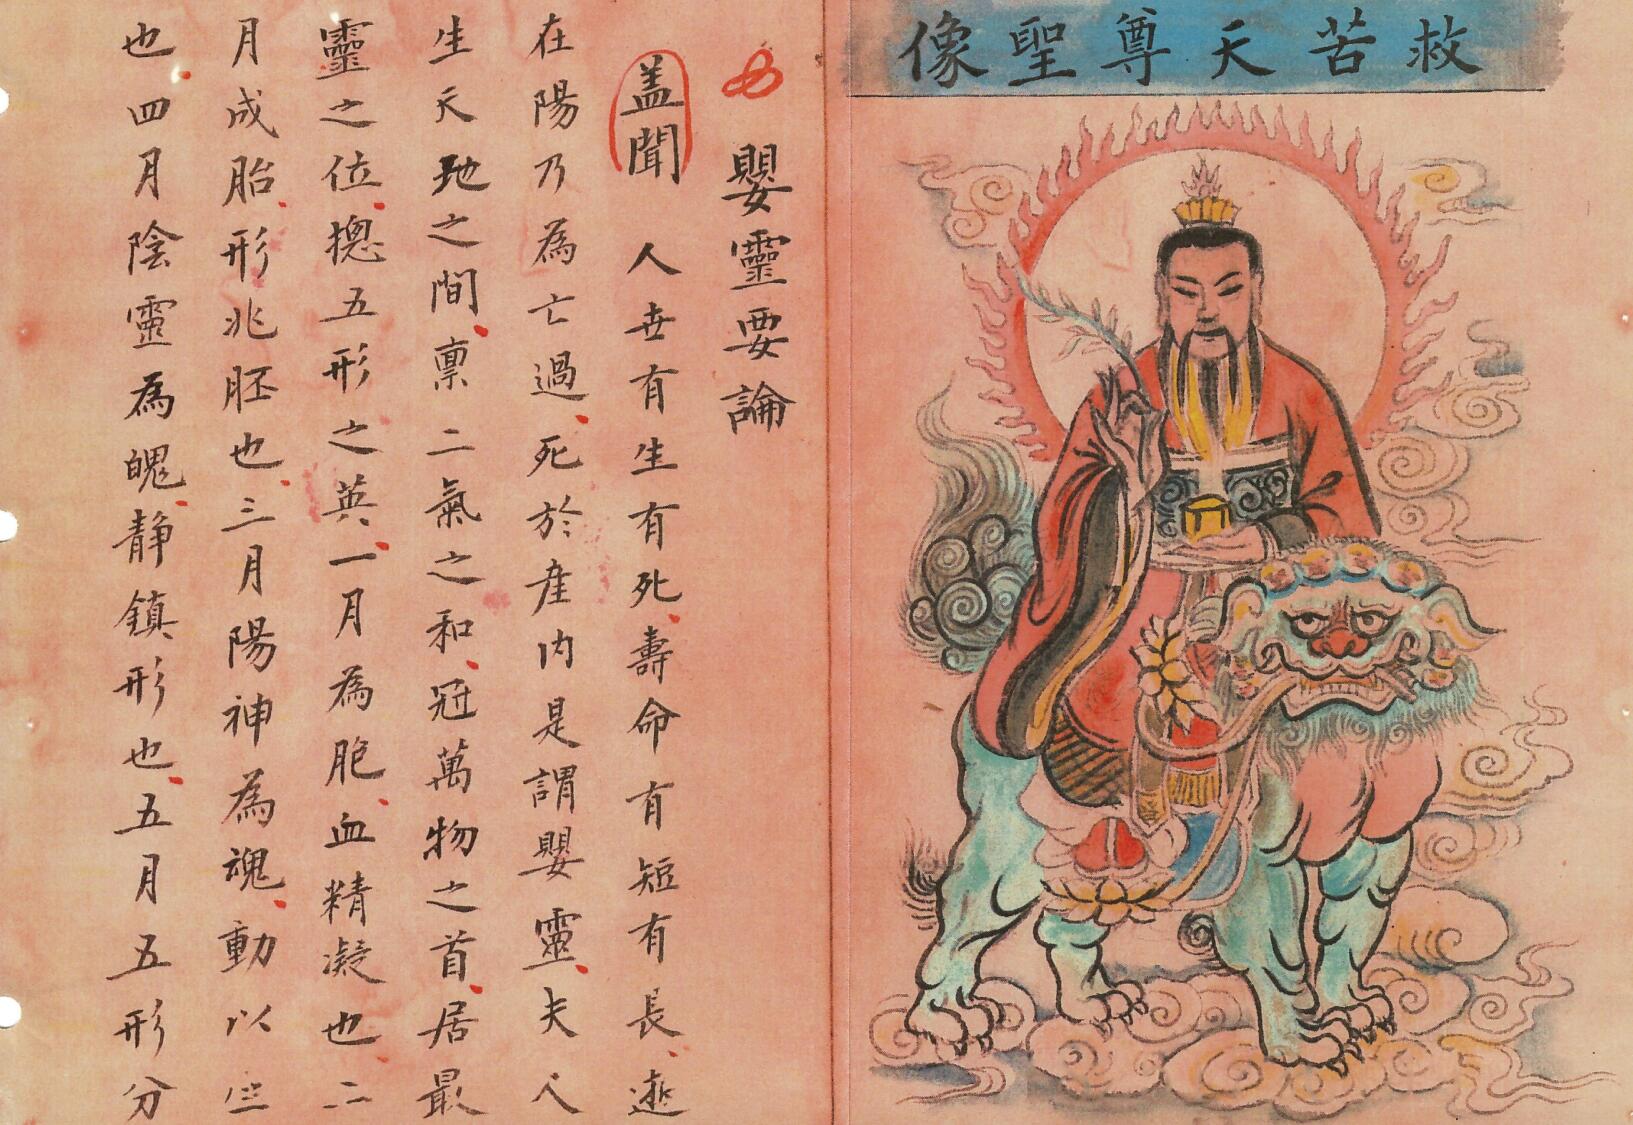 救苦天尊聖像
嬰靈要論
盖聞人世有生有死壽命有短有長逝
在陽乃為亡過死於產内是謂嬰靈夫人
生天地之間稟二氣之和冠萬物之首居最
靈之位摠五形之英一月為胞血精凝也二
月成胎形兆胚也三月陽神為魂動以生
也四月陰靈為魄静鎮形也五月五形分